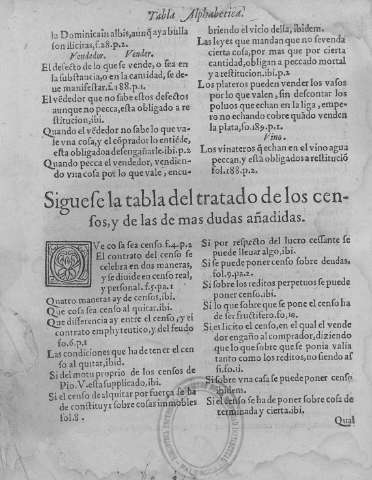 Tabla Alphabetica.
la Dominica in albis, aunq̃ aya bulla
son ilicitas, f.28.p.2.
Vendedor. Vender.
El defecto de lo que se vende, o sea en
la substancia, o en la cantidad, se de-
ue manifestar. f.188.p.1.
El vẽdedor que no sabe estos defectos
aunque no pecca, esta obligado a re
stitucion, ibi.
Quando el vẽdedor no sabe lo que va-
le vna cosa, y el cõprador lo entiẽde,
esta obligado a desengañarle. ibi. p.2
Quando pecca el vendedor, vendien-
do vna cosa por lo que vale, encu-
briendo el vicio della, ibidem.
Las leyes que mandan que no se venda
cierta cosa, por mas que por cierta
cantidad, obligan a peccado mortal
y a restitucion. ibi.p.2
Los plateros pueden vender los vasos
por lo que valen, sin descontar los
poluos que echan en la liga, empe-
ro no echando cobre quãdo venden
la plata, fo.189.p.1.
Vino.
Los vinateros q̃ echan en el vino agua
peccan, y està obligados a restituciõ
fol.188.p.2.
Siguese la tabla del tratado de los cen-
sos, y de las de mas dudas añadidas.
QVe cosa sea censo f.4.p.2
El contrato del censo se
celebra en dos maneras,
y se diuide en censo real,
y personal. f.5.pa.1
Quatro maneras ay de censos, ibi.
Que cosa sea censo al quitar. ibi.
Que differencia ay entre el censo, y el
contrato emphyteutico, y del feudo
fo.6.p.1
Las condiciones que ha de tener el cen
so al quitar, ibid.
Si del motu proprio de los censos de
Pio. V. esta supplicado, ibi.
Si el censo de al quitar por fuerça se ha
de constituyr sobre cosas immobles
fol.8.
Si por respecto del lucro cessante se
puede lleuar algo, ibi.
Si se puede poner censo sobre deudas,
fol.9.pa.2.
Si sobre los reditos perpetuos se puede
poner censo. ibi.
Si lo que sobre que se pone el censo ha
de ser fructifero. fo.10.
Si es licito el censo, en el qual el vende
dor engaño al comprador, diziendo
que lo que sobre que se ponia valia
tanto como los reditos, no siendo as
si. fo.11.
Si sobre vna casa se puede poner censo
ibidem.
Si el censo se ha de poner sobre cosa de
terminada y cierta. ibi.
Qual